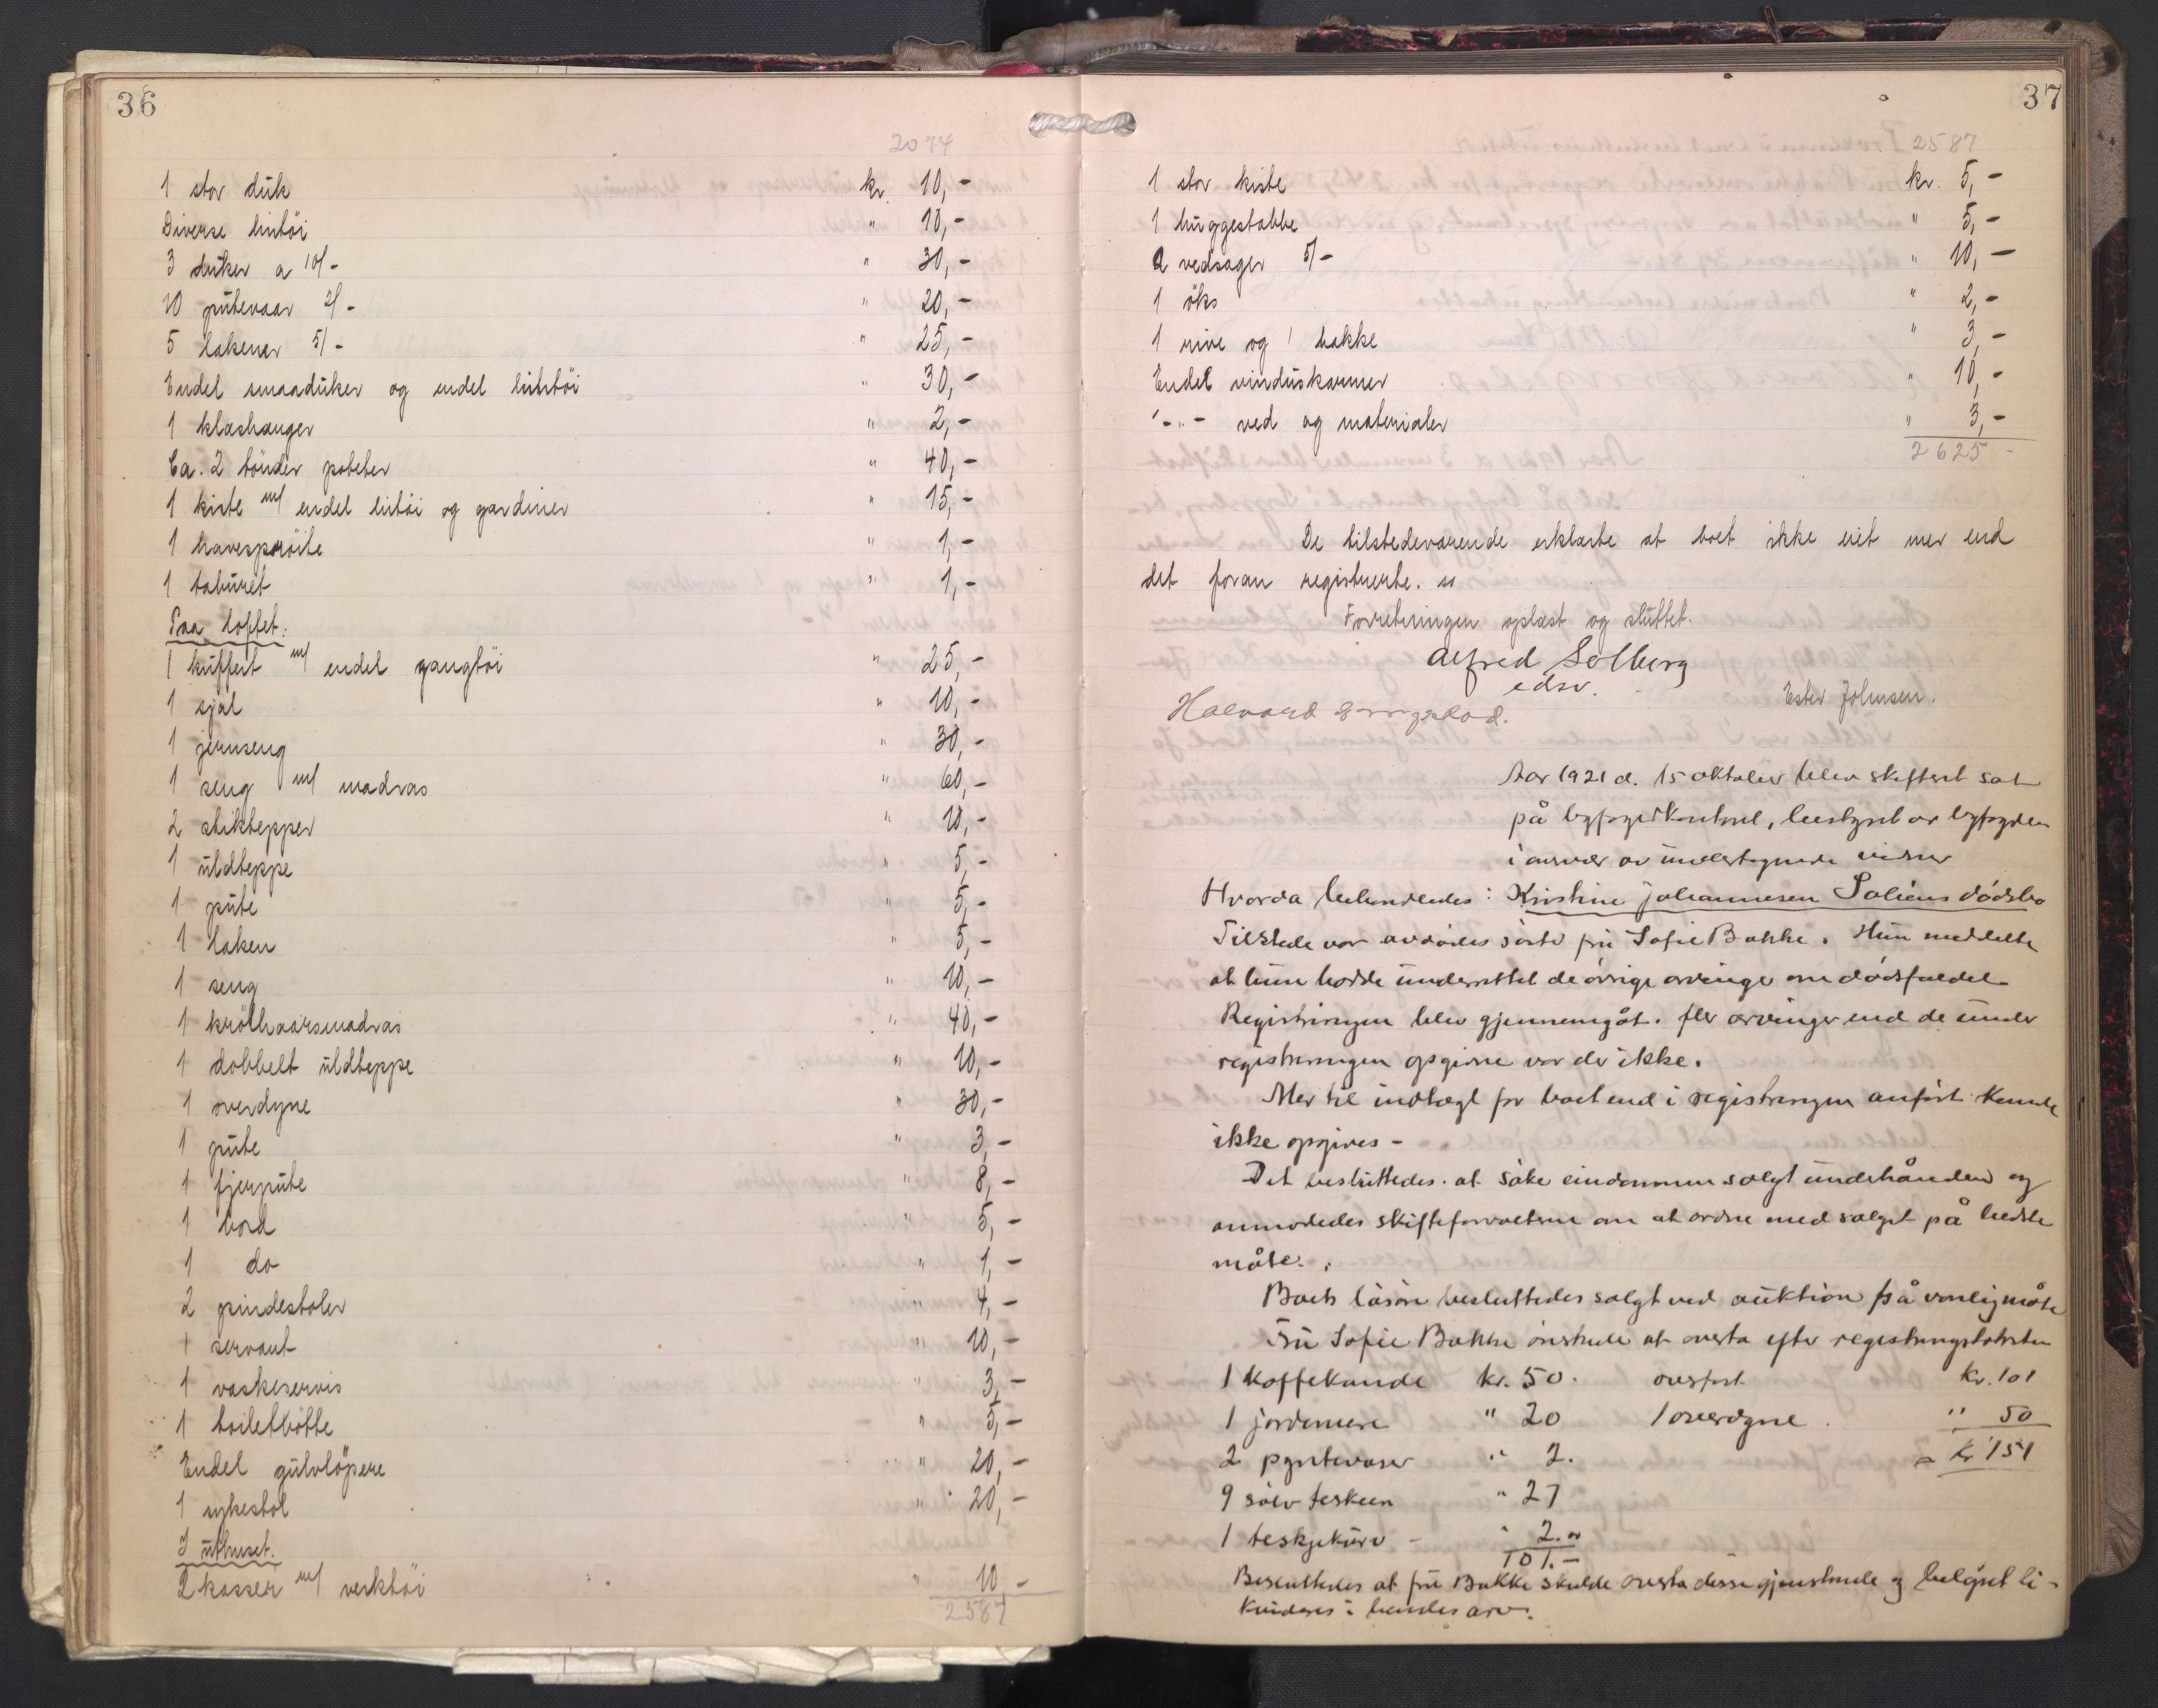 36
2074
1 stor duk kr. 10,-
Diverse lintöi " 10,-
3 duker a 10/- " 30,-
10 putevaar 2/- " 20,-
5 lakener 5/- " 25,-
Endel smaaduker og endel lintöi " 30,-
1 klæshænger " 2,-
Ca. 2 tönder poteter " 40,-
1 kiste m/ endel lintöi og gardiner " 15,-
1 havespröite " 1,-
1 taburet " 1,-
Paa loftet:
1 kuffert m/ endel gangtöi " 25,-
1 sjal " 10,-
1 jernseng " 30,-
1 seng m/ madras " 60,-
2 stiktepper " 10,-
1 uldteppe " 5,-
1 pute " 5,-
1 laken " 5,-
1 seng " 10,-
1 krölhaarsmadras " 40,-
1 dobbelt uldteppe " 10,-
1 overdyne " 30,-
1 pute " 3,-
1 fjerpute " 8,-
1 bord " 5,-
1 do " 1,-
2 pindestoler " 4,-
1 servant " 10,-
1 vaskeservis " 3,-
1 toiletbötte " 5,-
Endel gulvlöpere " 20,-
1 sykestol " 20,-
I uthuset.
2 kasser m/ verktöi " 10 -
2587
37
2587
1 stor kiste kr. 5,-
1 huggestabbe " 5,-
2 vedsager 5/- " 10,-
1 öks " 2,-
1 rive og 1 hakke " 3,-
Endel vinduskarmer " 10,-
-"- ved og materialer " 3,-
2625 -
De tilstedeværende erklærte at boet ikke eiet mer end
det foran registrerte.
Forretningen oplæst og sluttet.
Alfred Solberg
edsv.
Ester Johnsen.
Halvard
Aar 1921 d. 15 oktober blev skifteret sat
på byfogedkontoret, bestyret av byfogden
i overvær av undertegnede vidner
Hvorda behandledes: Kristine Johannesen Soliens dödsbo
Tilstede var avdödes söster fru Sofie Bakke. Hun meddelte
at hun hadde underrettet de övrige arvinge om dödsfaldet.
Registringen blev gjennemgåt. fler arvinger end de under
registreringen opgivne var der ikke.
Mer til indtægt for boet end i registringen anfört kunde
ikke opgives -
Det besluttedes at söke eindommen solgt underhånden og
anmodedes skifteforvalteren om at ordne med salget på bedste
måte.
Boets lösöre besluttedes solgt ved auktion på vanlig måte
Fru Sofie Bakke önskede at overta efter registringstaksten
1 Kaffekande kr. 50. overfört kr. 101
1 jordemere " 20 1 overdyne. " 50
2 pyntevaser " 2. = kr 151
9 sölv teskeer " 27
1 teskjekurv - " 2.
101.-
Besluttedes at fru Bakke skulde overta disse gjenstande og belöpet li-
kvideres i hendes arv.